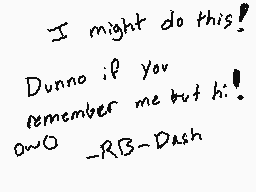 I might do this!
Dunno if you
remember me but hi!
OwO
-RB-Dash